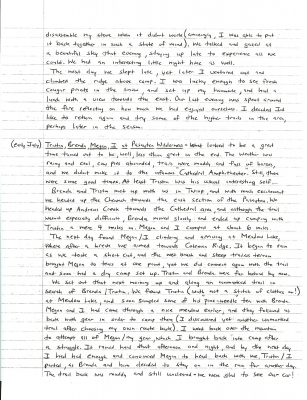 disassemble my stove when it didn't work (amazingly, I was able to put
it back together in such a state of mind). We talked and gazed at
a beautiful sky that evening, staying up late to experience all we
could. We had an interesting little night hike as well.
The next day we slept late, yet later I ventured out and
climbed the ridge above camp. I was lucky enough to see fresh
Cougar prints in the snow, and set up my hammock, and had a
lunch with a view towards the east. Our last evening was spent around
the fire reflecting on how much we had enjoyed ourselves. I decided I'd
like to return again and dry some of the higher trails in the area,
perhaps later in the season.
(Early July) Trista, Brenda, Megin, I at Pasayten Wilderness - What looked to be a great
time turned out to be, well, less than great in the end. The weather was
rainy and cool, cow pies abounded, trails were muddy and full of horses,
and we didn't make it to the infamous Cathedral Amphitheater. Still, there
were some good times. At least Trista was his usual interesting self...
Brenda and Trista met up with us in Twisp, and with much excitement
we headed up the Chewuch towards the east section of the Pasayten. We
headed up Andrews Creek towards the Cathedral area, and although the trail
wasn't especially difficult, Brenda moved slowly and ended up camping with
Trista a mere 4 miles in. Megin and I camped at about 6 miles.
The next day found Megin/I climbing and arriving at Meadow Lake,
where after a break we aimed towards Coleman Ridge. It began to rain
as we took a short cut, and the wet brush and steep terrain
brought Megin to tears at one point, yet we did connect again with the trail
and soon had a dry camp set up. Trista and Brenda were far below by now.
We set out that next morning up and along an unmarked trail in
search of Brenda/Trista. We found Trista (with not a stitch of clothes on!)
at Meadow Lake, and soon sampled some of his pine-needle tea with Brenda.
Megin and I had come through a nice meadow earlier, and they followed us
back with gear in order to camp there (I discovered yet another unmarked
trail after choosing my own route back). I went back over the mountain
to attempt all of Megin/my gear which I brought back into camp after
a struggle. It rained hard that afternoon and night, and by the next day
I had had enough and convinced Megin to head back with me. Trista/I
parted, as Brenda and him decided to stay on in the rain for another day.
The trail back was muddy and still cowridden - we were glad to see our car!